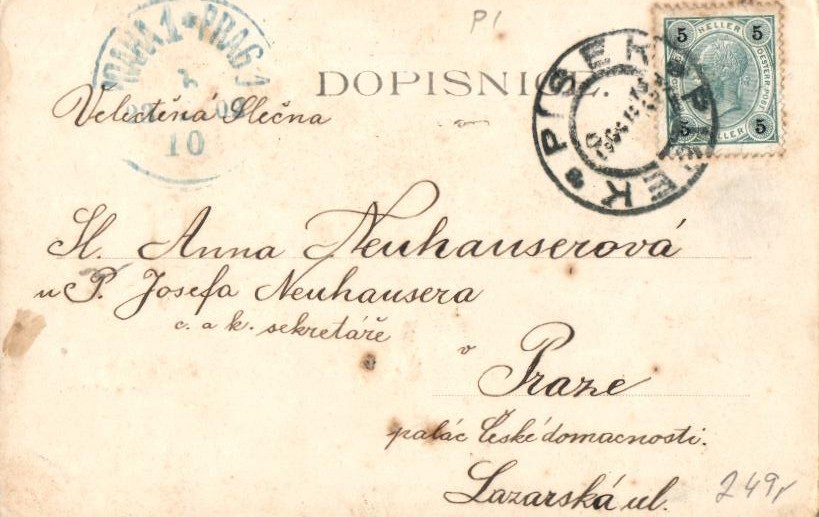 P1
PRAHA 1 * PRAG 1
10
DOPISNICE.
PISEK * PISEK
5 HELLER 5
OESTERR. POST
5 HELLER 5
Velectěná Slečna
Sl. Anna Neuhauserová
u P. Josefa Neuhausera
c. a k. sekretáře
v Praze
palác České domacnosti.
Lazarská ul.
249,-